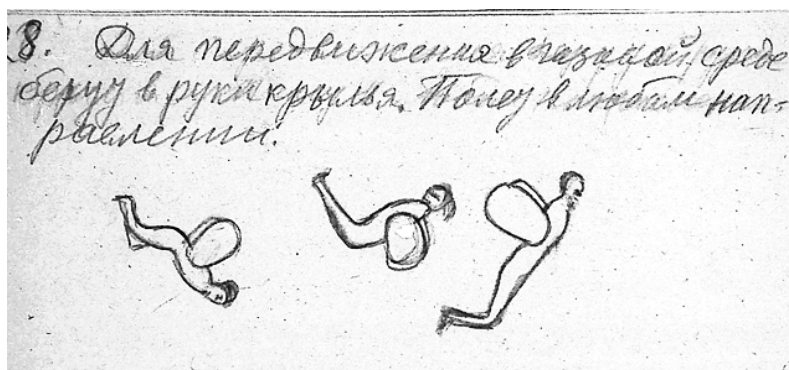 8. Для передвижения в газовой среде
беру в руки крылья. Полет в любом нап-
равлении.